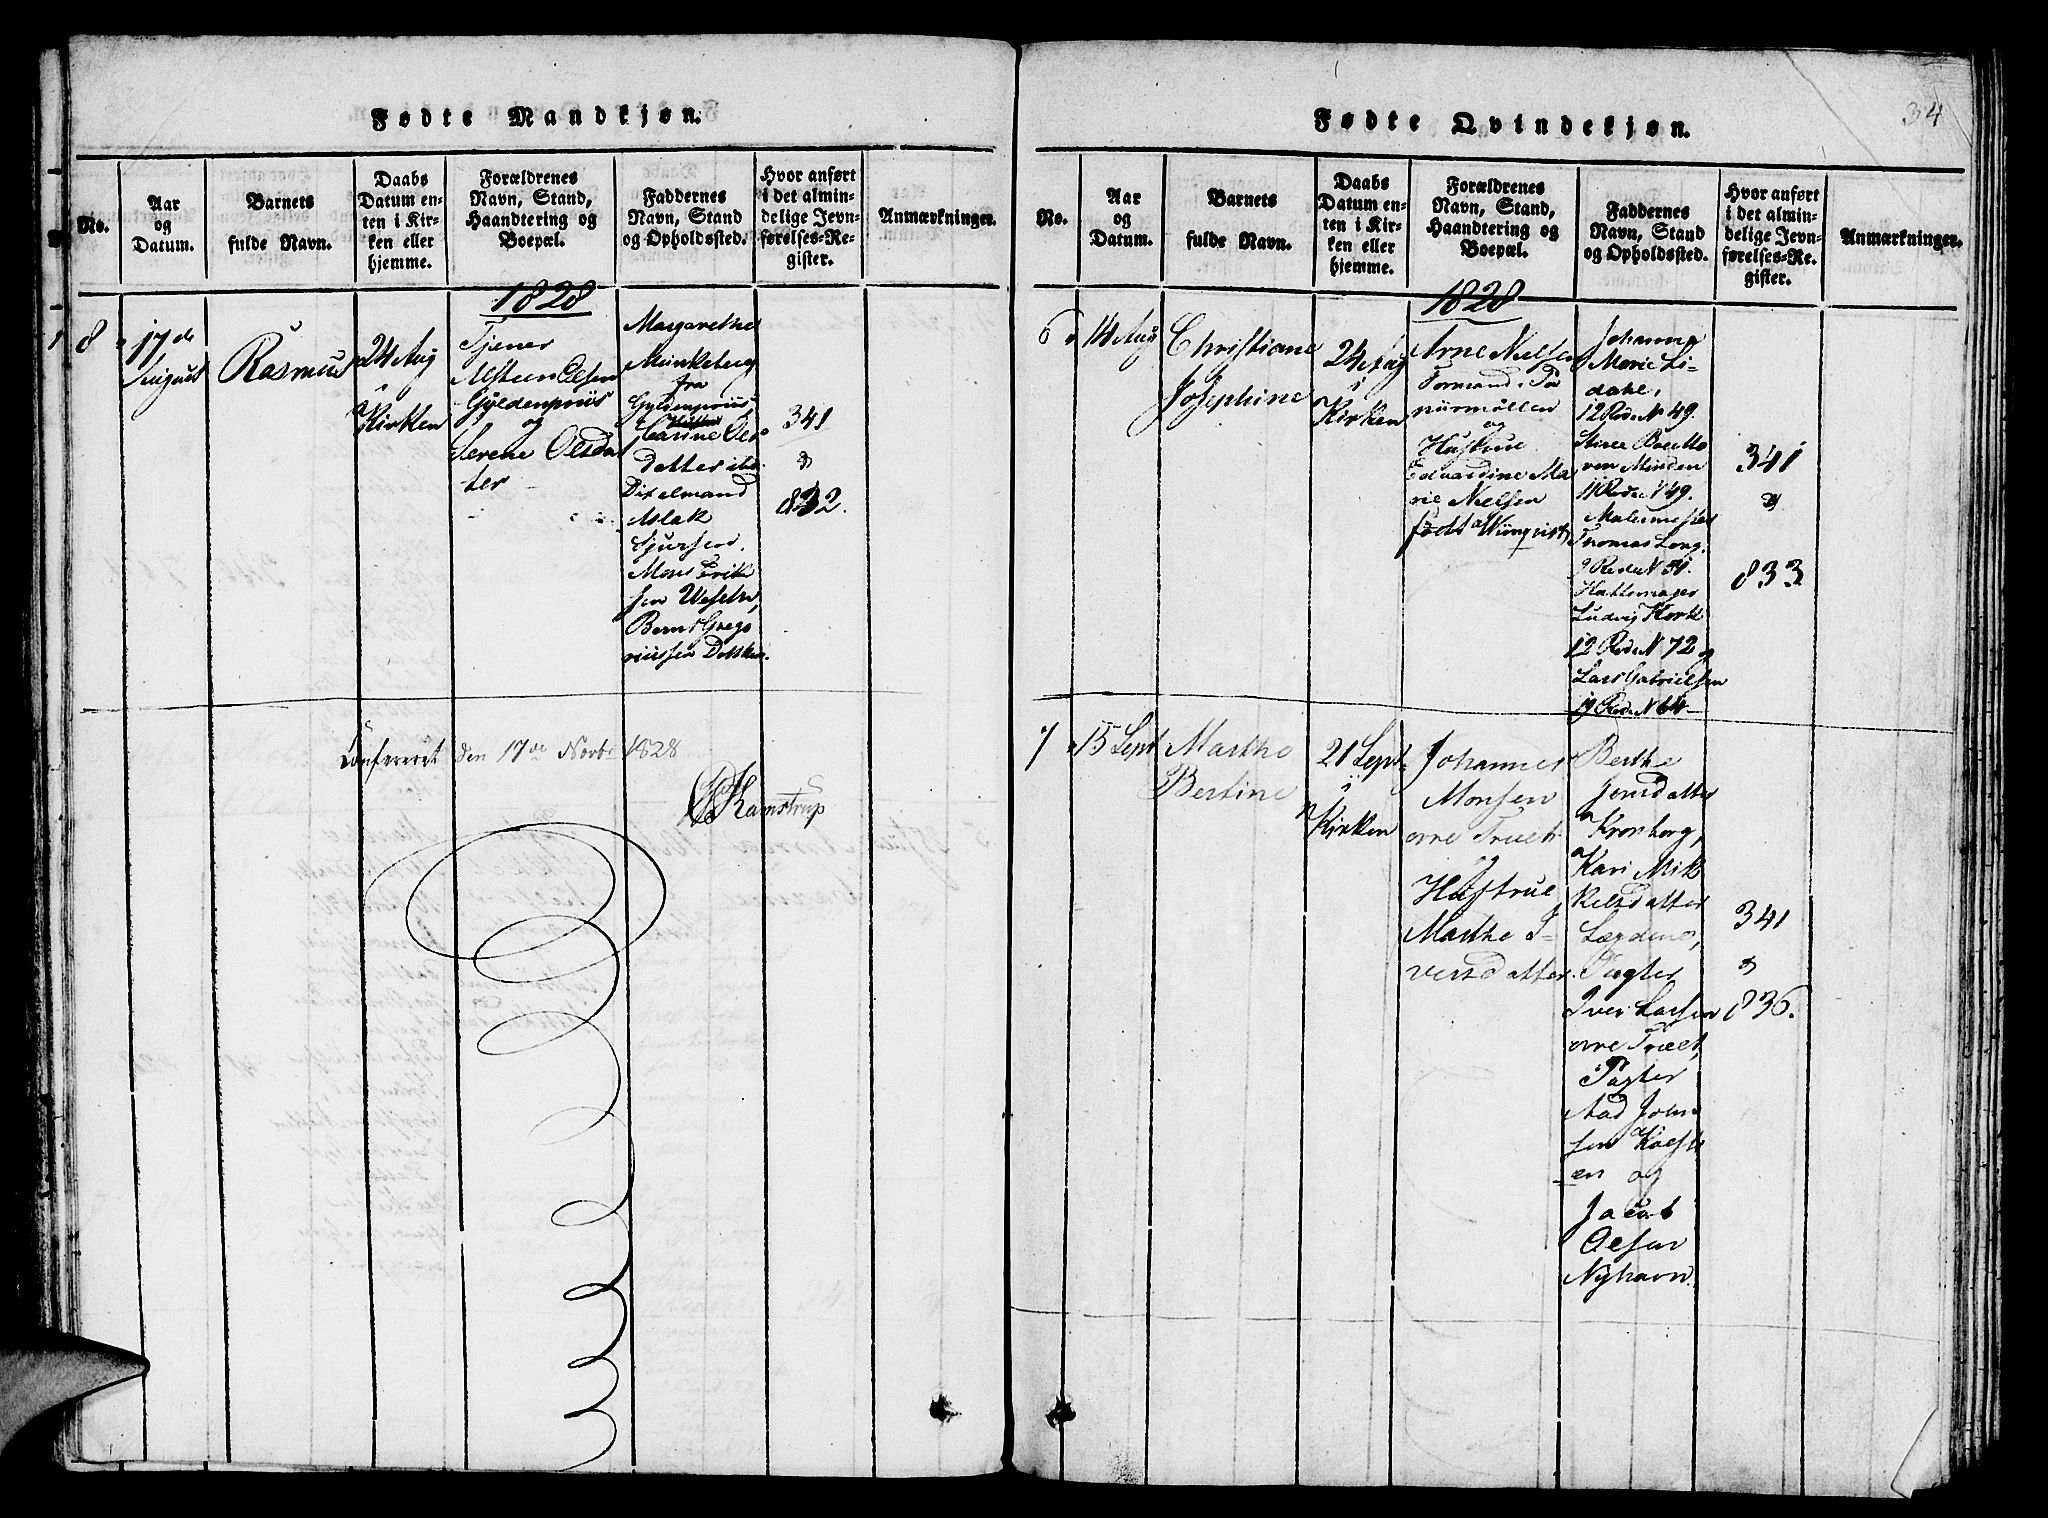 Fødte Mandkjøn.
No.
Aar
og
Datum.
Barnets
fulde Navn.
Daabs
Datum en-
ten i Kir-
ken eller
hjemme.
Forældrenes
Navn, Stand,
Haandtering og
Boepæl.
Faddernes
Navn, Stand
og Opholdssted.
Hvor anført
i det almin-
delige Jevn-
førelses-Re-
gister.
Anmærkninger.
1828
8
17de
August
Rasmus
24 Aug
i
Kirken
Tjener
Alsteen Olsen
Gyldenpriis
og
Serene Olsda
ter
Margrethe
Munkeberg
fra
Gyldenpriis,
Carine Ols
datter ibd.
Dixelmand
Aslak
Sjursen,
Mons Erik
sen
Bernt Grego
riussen
341
&
832.
Confereret den 17de Novbr 1828
Kamstrup
Fødte Qvindekjøn.
34
No.
Aar
og
Datum.
Barnets
fulde Navn.
Daabs
Datum en-
ten i Kir-
ken eller
hjemme.
Forældrenes
Navn, Stand,
Haandtering og
Boepæl.
Faddernes
Navn, Stand
og Opholdssted.
Hvor anført
i det almin-
delige Jevn-
førelses-Re-
gister.
Anmærkninger.
1828
6
14 Aug
Christiane
Josephine
24 Aug
i
Kirken
Arne Nielsen
Formand i Pa
piirmøllen
og
Hustrue
Edvardine Ma
rie Nielsen
født
Johanna
Marie Li-
dahl,
12 Rode N 49.
von Minden
11 Rode N 49.
Malermester
Thomas Long
9 Rode N 51.
Hattemager
Ludvig Kork
12 Rode N 72 og
Lars Gabrielsen
19 Rode N 64
341
&
833
7
15 Sept
Marthe
Bertine
21 Sept
i
Kirken
Johannes
Monsen
øvre Fruet
og
Hustrue
Marthe I-
versdatter.
Berthe
Jonsdatter
Kronborg,
Kari Mik
kelsdatter
Lægdene,
Pagter
Iver Larsen
øvre Fruet,
Pagter
Aad John
sen
og
Jacob
Olsen
Nyhavn.
341
&
836.